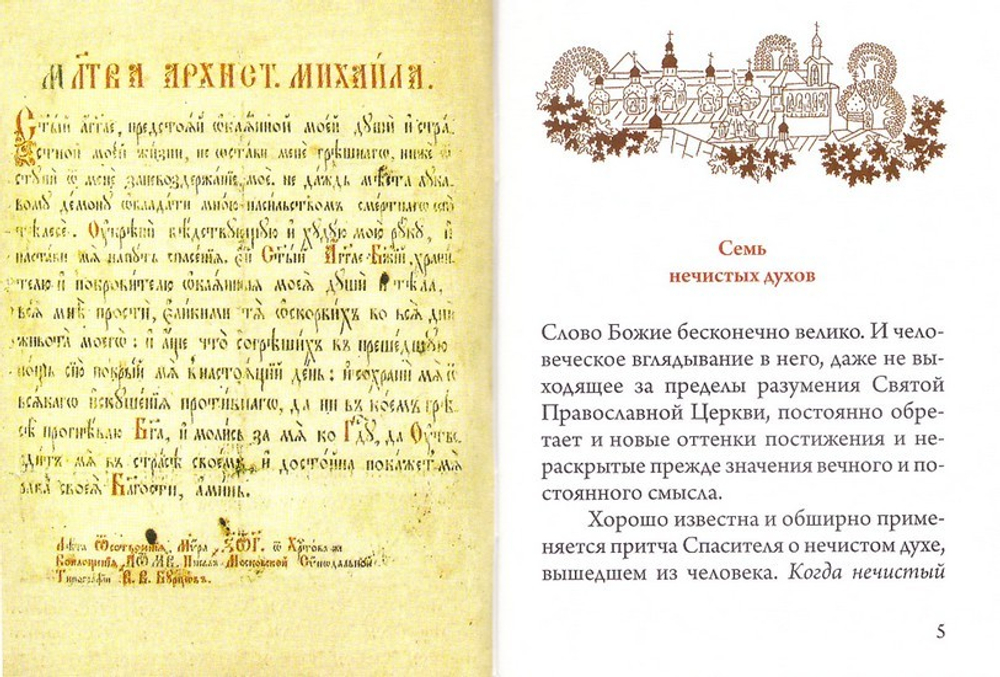 МЛ҃ТВА АРХИСТ. МИХАИ́ЛА.
Ст҃ый Аг҃гле, предстоѧй ѡкаѧнной моей души и стра
стной моей жизни, не ѡстави мене грѣшнаго, ниже ѿ
ступи ѿ мене за невоздержанїе мое. не даждь мѣста лука
вому демону ѡбладати мною насильствомъ смертнагѡ сегѡ
тѣлесе. Оукрѣпи бѣдствующую и худую мою руку, и
настави мѧ на путь спасенїѧ. Ей Ст҃ый Аг҃гле Бж҃їй, храни
телю и покровителю ѡкаѧнныѧ моеѧ души и тѣла,
всѧ мнѣ прости, еликими тѧ ѡскорбихъ во всѧ дни
живота моегѡ: и аще что согрѣшихъ въ прешедшую
нощь сїю покрый мѧ в настоѧщїй день: и сохрани мѧ ѿ
всѧкагѡ искушенїѧ противнагѡ, да ни въ коемъ грѣ
сѣ прогнѣваю Бг҃а, и молись за мѧ ко Гд҃у, да Оутве
дитъ мѧ въ страсѣ своемъ, и достойна покажетъ мѧ
раба своеѧ Бл҃гости, аминь.
Лѣта Ѿ сотворенїѧ Мѵра ѿ Христова же
Воплощенїѧ Писалъ Московской Сѵнодальной
Типографїи В. В. Бурцовъ.
Семь
нечистых духов
Слово Божие бесконечно велико. И чело-
веческое вглядывание в него, даже не вы-
ходящее за пределы разумения Святой
Православной Церкви, постоянно обре-
тает и новые оттенки постижения и не-
раскрытые прежде значения вечного и по-
стоянного смысла.
Хорошо известна и обширно приме-
няется притча Спасителя о нечистом духе,
вышедшем из человека. Когда нечистый
5